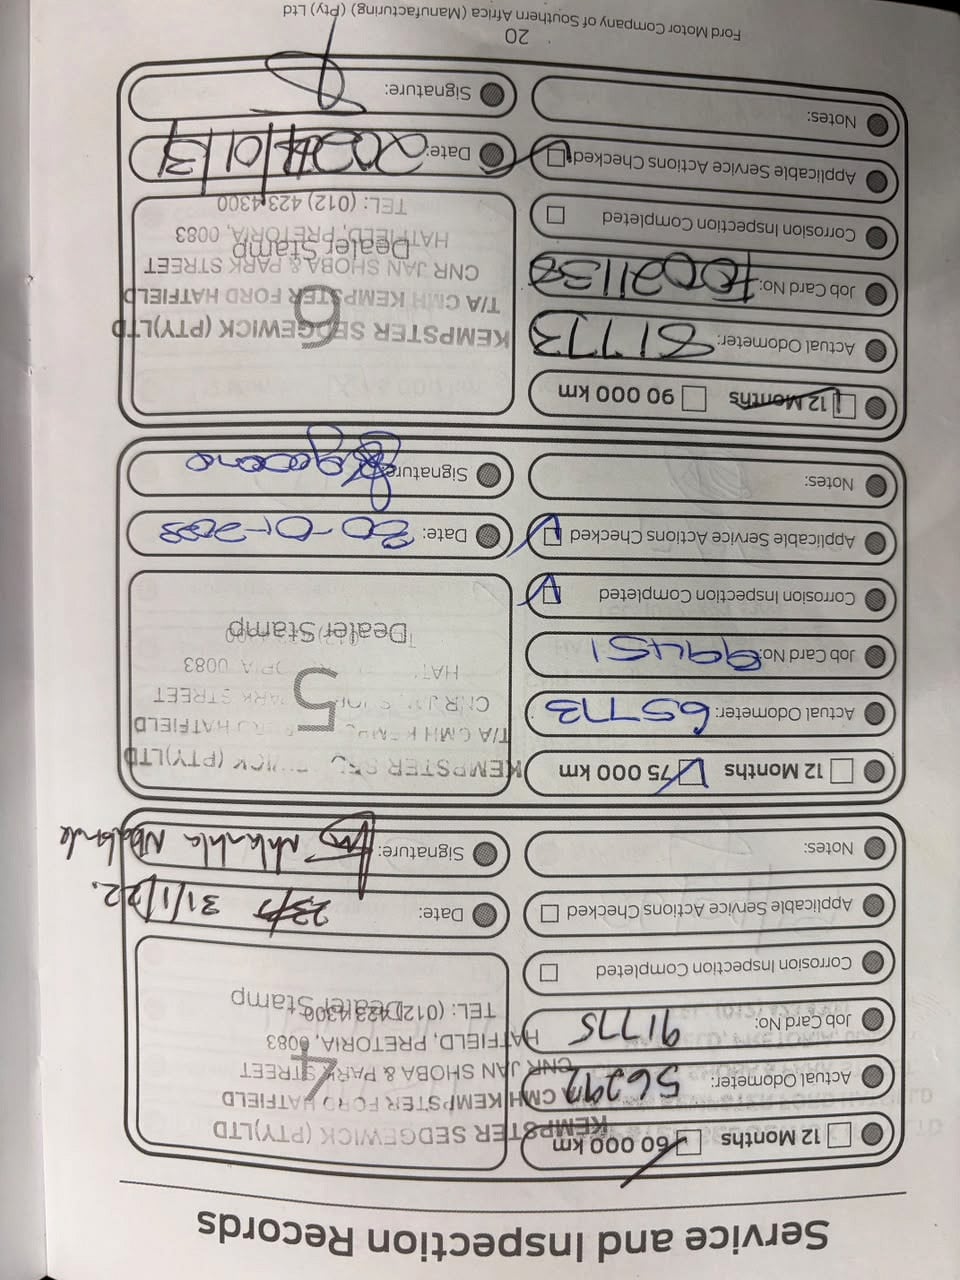 Service and Inspection Records
12 Months 60 000 km
Actual Odometer: 56292
Job Card No: 91775
Corrosion Inspection Completed
Applicable Service Actions Checked
Notes:
4
Dealer Stamp
KEMPSTER SEDGEWICK (PTY)LTD
CMH KEMPSTER FORD HATFIELD
CNR JAN SHOBA & PARK STREET
HATFIELD, PRETORIA, 0083
TEL: (012) 423 4300
Date: 31/1/22.
Signature: Nhlanhla
12 Months 75 000 km
Actual Odometer: 65773
Job Card No: 99451
Corrosion Inspection Completed
Applicable Service Actions Checked
Notes:
5
Dealer Stamp
KEMPSTER (PTY)LTD
T/A CMH HATFIELD
CNR PARK STREET
0083
Date: 20-01-2023
Signature:
12 Months 90 000 km
Actual Odometer: 81773
Job Card No:
Corrosion Inspection Completed
Applicable Service Actions Checked
Notes:
6
Dealer Stamp
KEMPSTER SEDGEWICK (PTY)LTD
T/A CMH KEMPSTER FORD HATFIELD
CNR JAN SHOBA & PARK STREET
HATFIELD, PRETORIA, 0083
TEL: (012) 423 4300
Date:
Signature:
20
Ford Motor Company of Southern Africa (Manufacturing) (Pty) Ltd